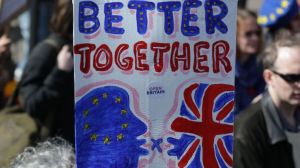 BETTER
TOGETHER
OPEN
BRITAIN